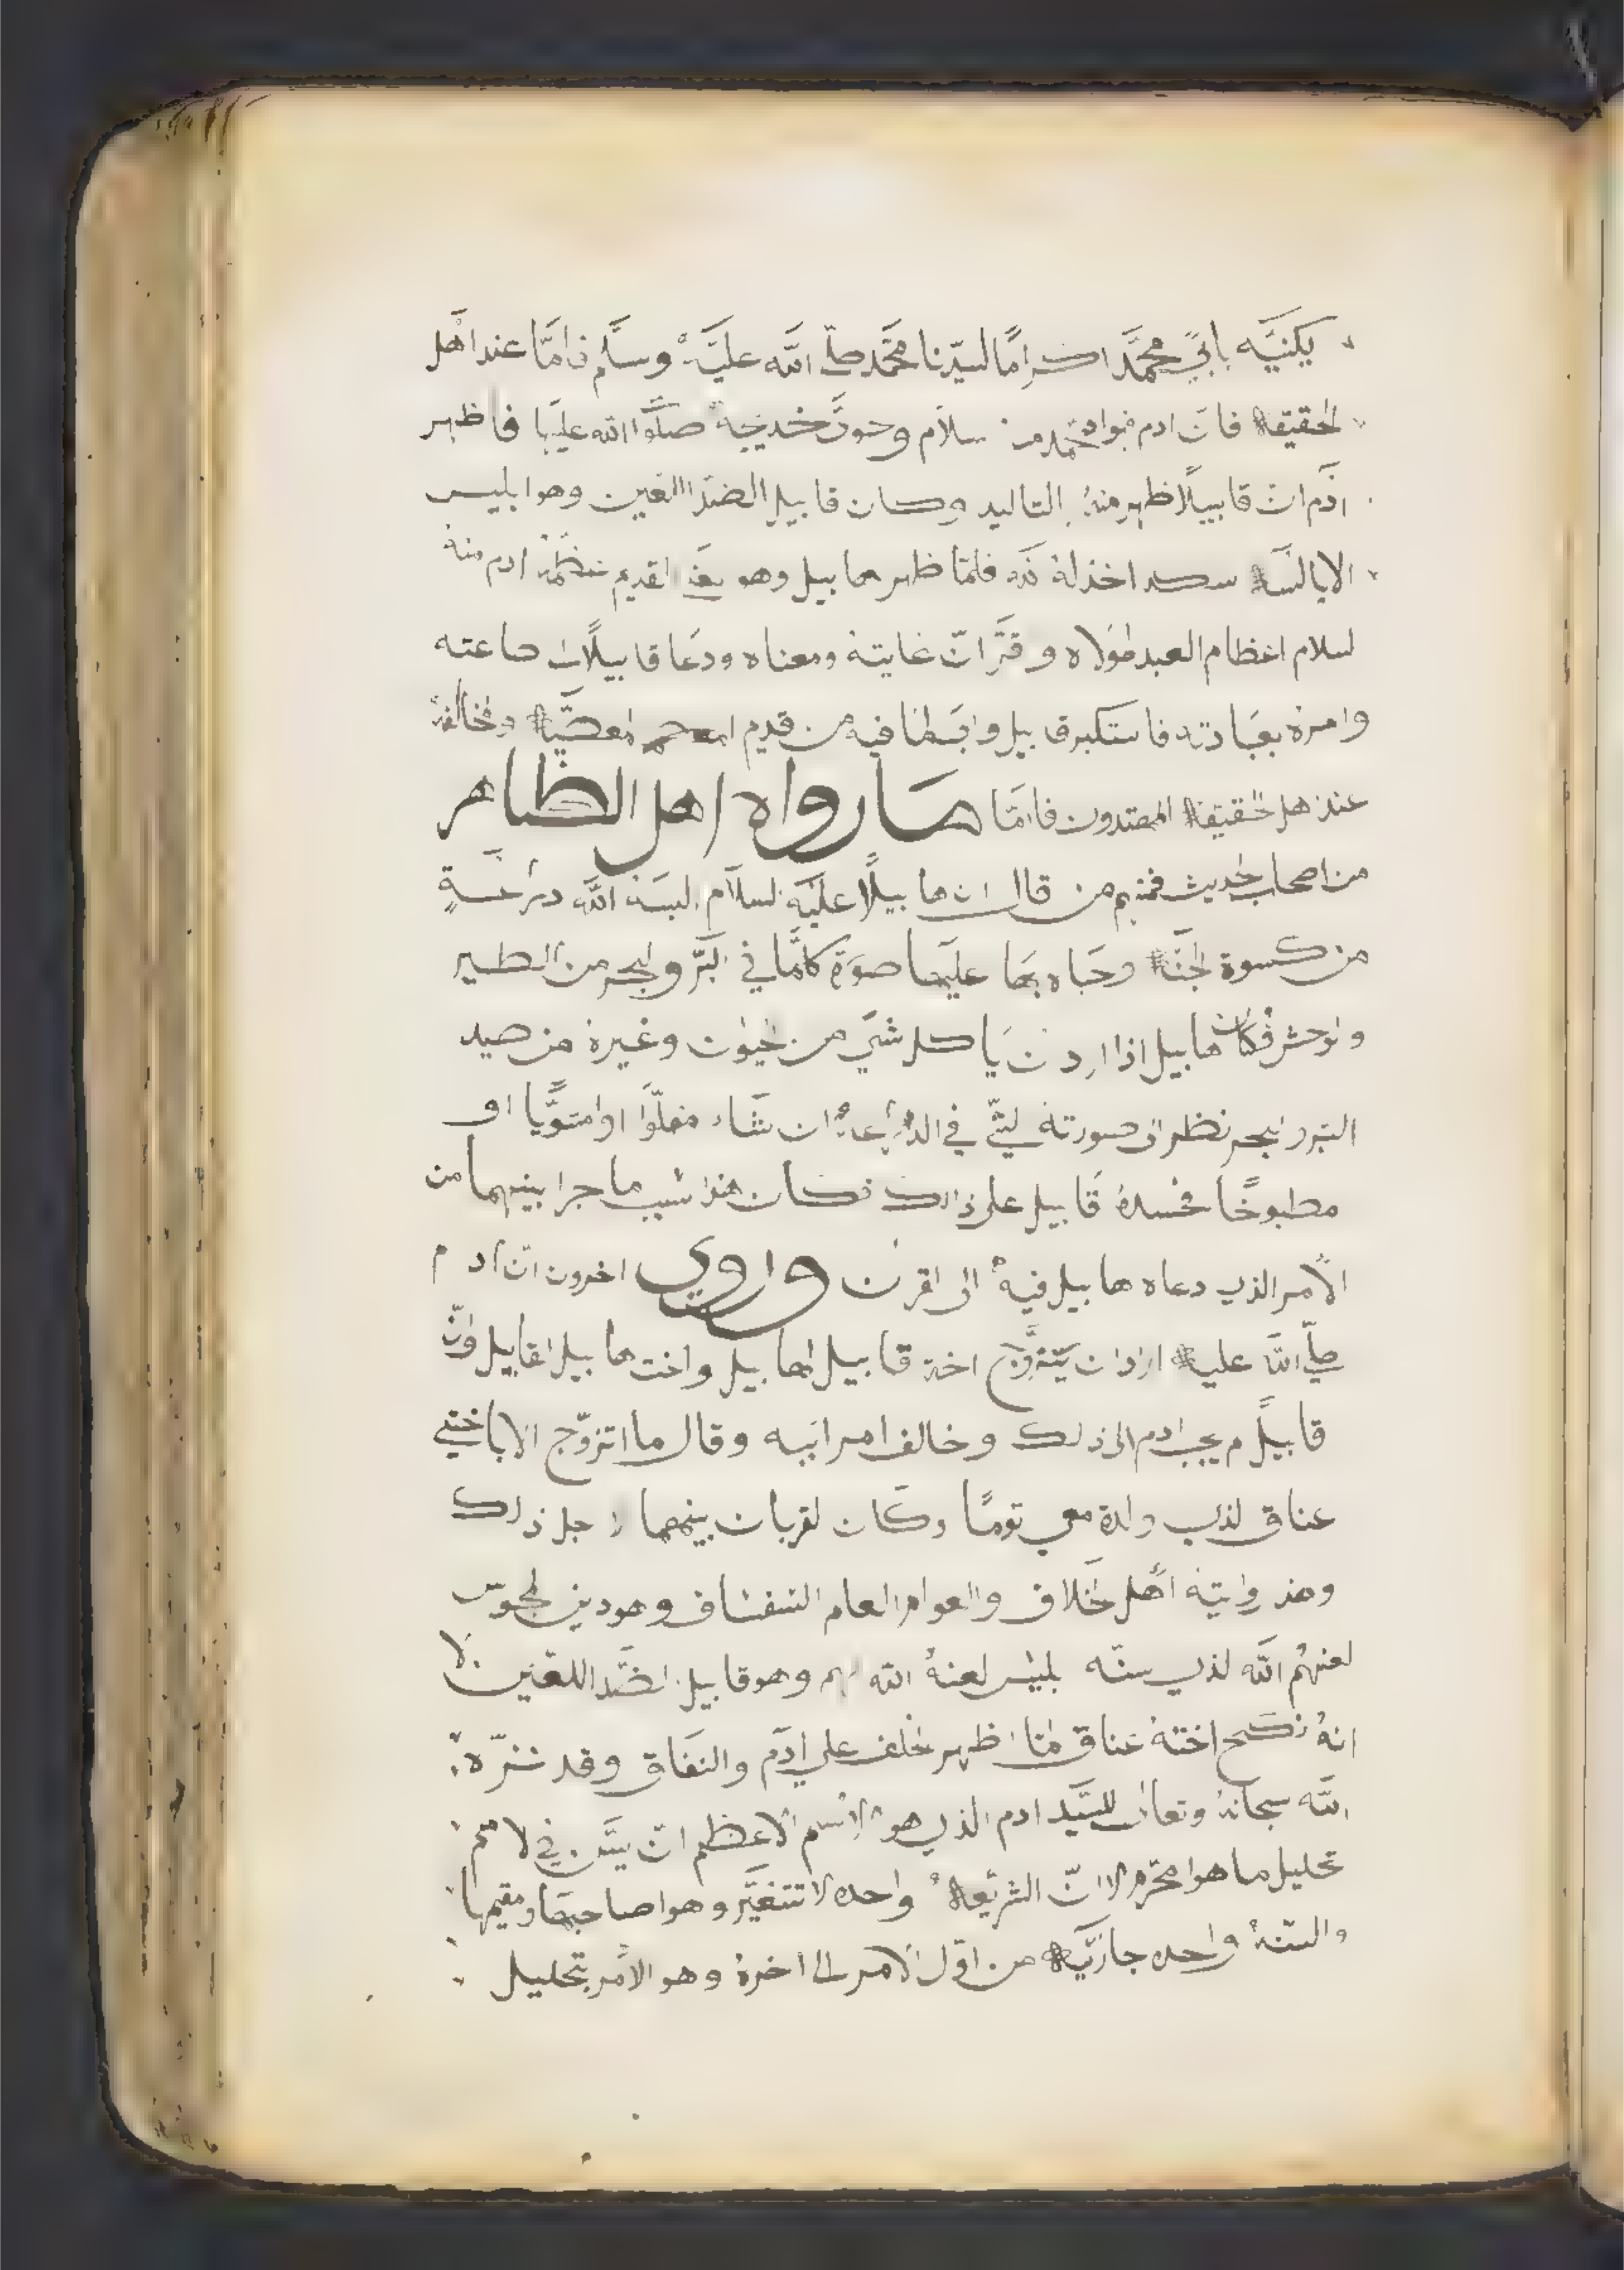 يكنيه بابي محمد اكراما لسيدنا محمد صلى الله عليه وسلم فامّا عند اهل
الحقيقه فانّ ادم فهوا محمد من سلام وحوى خديجة صلوا الله عليها فاظهر
ادم انّ قابيلًا ظهر منه التاليد وكان قابيل الضدّ اللعين وهوا بليس
الابالسه فلمّا ظهر هابيل وهو ادم منه
لسلام اعظام العبد لمولاه وقرّ انّ غايته ومعناه ودعا قابيلًا طاعته
وامره بعبادته فاستكبر قابيل فيه من قديم ومخالفة
عند هل الحقيقه المهتدون فامّا مارواه اهل الظاهر
من اصحاب الحديث فمنهم من قال ان هابيلًا عليه لسلام لبسه الله درّاعةٍ
من كسوة الجنّه وحباه بها عليها صورة كلما في البرّ والبحر من الطير
والوحش فكان هابيل اذا اراد ان ياكل شي من الحيوان وغيره من صيد
البرّ والبحر نظر الى صورته في الدرّاعة ان شاء مقلوّا او مشويّا او
مطبوخًا فحسده قابيل على ذالك فكان هذا سبب ماجرا بينهما من
الأمر الذي دعاه هابيل فيه الى القربان وروي اخرون انّ ادم
صلّى الله عليه اراد ان يتزوّج اخت قابيل لهابيل واخت هابيل لقابيل وانّ
قابيل لم يجب ادم الى ذلك وخالف امر ابيه وقال ما اتزوّج الا باختي
عناق لذي ولدة معي تومًا وكان لقربان بينهما لاجل ذلك
وهذ روايته اهل الخلاف والعوام العام النفساف وهو دين المجوس
لعنهم الله لذي سنّه بليس لعنه الله لهم وهو قابيل الضدّ اللعين لا
انه نكح اخته عناق لمّا اظهر الخلف على ادم والنفاق وقد نزّه
الله سبحانه وتعالى للسيّد ادم الذي هو الاسم الاعظم انّ يبيّن في لامم
تحليل ما هوا محرّم لا انّ الشريعة واحده لا تتغيّر وهوا صاحبها ومقيمها
والسنّة واحده جاريه من اوّل الامر الى اخره وهو الأمر بتحليل